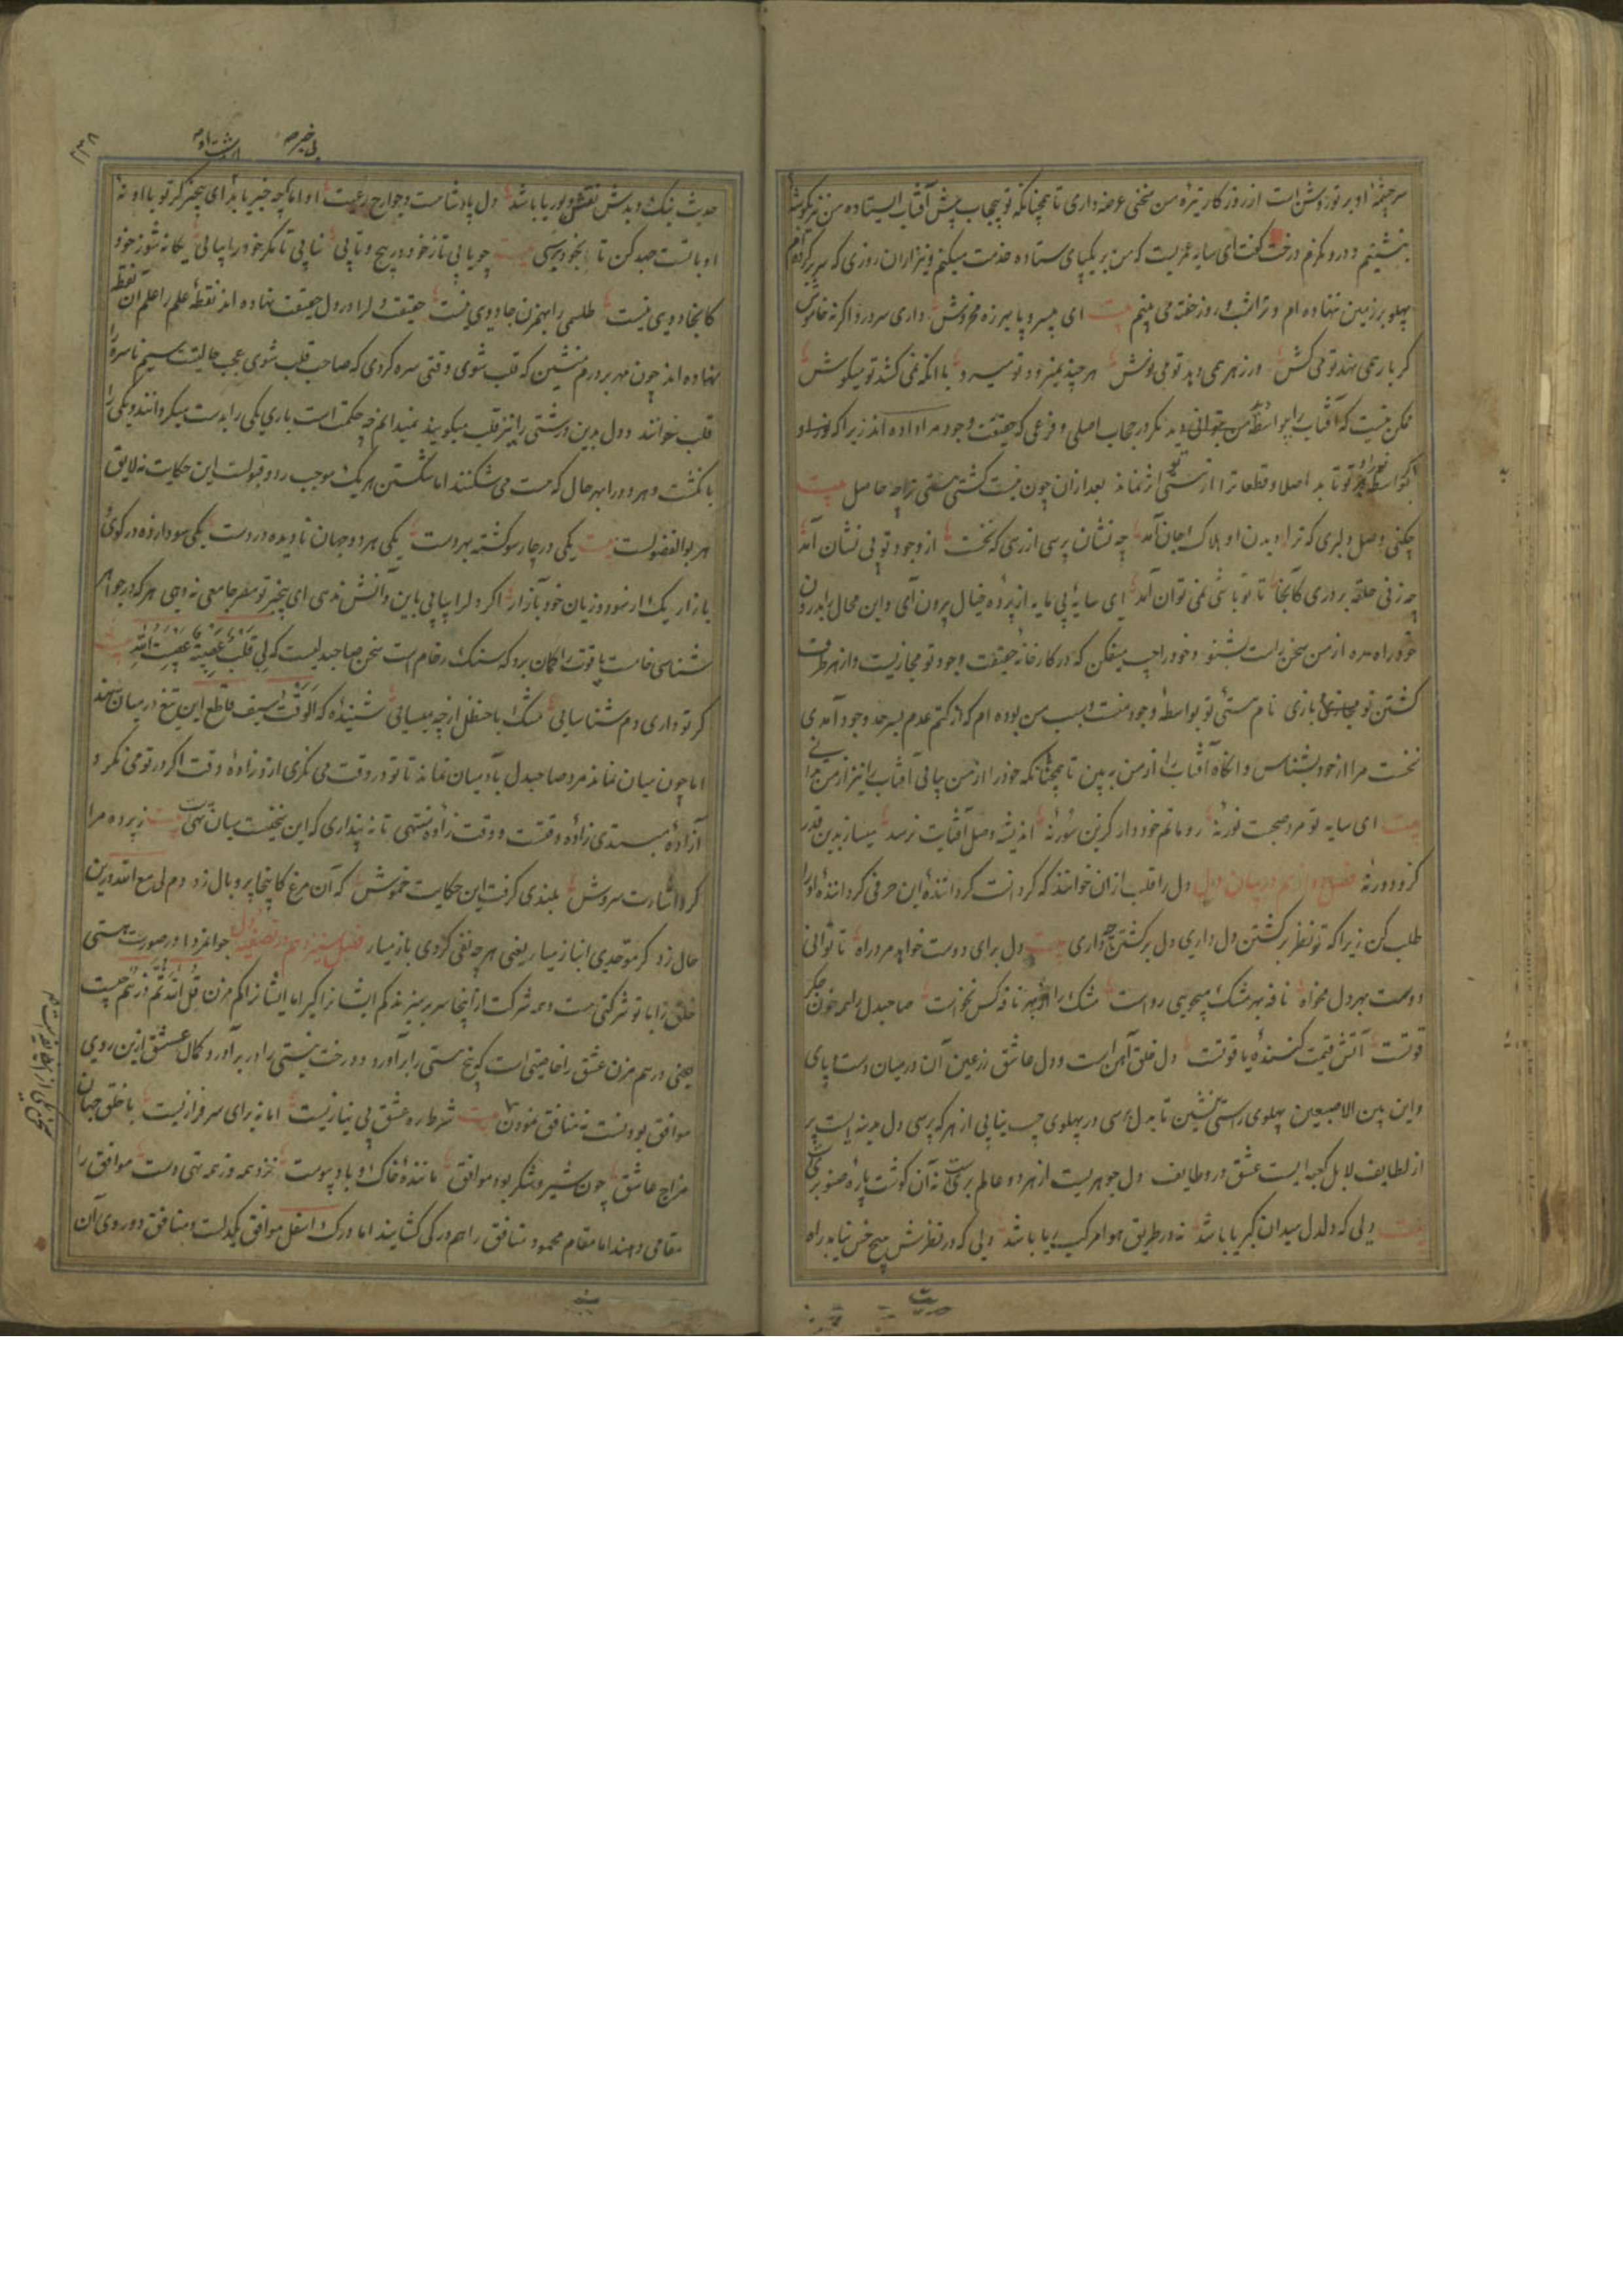 سرچشمهٔ او بر تو روشن است از روزگار تیرهٔ من سخنی عرضه داری تا همچنانکه تو بیحجاب پیش آفتاب ایستاده من نیز گوشهٔ
بنشینم و درو نگرم درخت گفت ای سایه عمریست که من بر یکپای ستاده خدمت میکنم و نیز از آن روزی که سر برکرده‌ام
پهلو بر زمین نهاده‌ام و ترا شب و روز خفته می بینم بیت ای بیسر و پا هرزه مخروش داری سر درد اگر نه خاموش
گر بار همی نهد تو می کش ور زهر همی دهد تو می نوش هر چند نمیرود تو میرو با آنکه نمی کشد تو میکوش
ممکن نیست که آفتاب را بواسطهٔ من توانی دید مگر در حجاب اصلی و فرعی که حقیقت وجود مرا داده اند زیرا که
اگر بواسطه نور او بر تو تابد اصلا و قطعا ترا از هستی تو اثر نماند بعد از آن چون نیست گشتی هستی ترا چه حاصل بیت
چکنی وصل دلبری که ترا دیدن او هلاک جان آمد چه نشان پرسی از رخی که نخست از وجود تو بی نشان آمد
چه زنی حلقه بر دری کانجا تا تو باشی نمی توان آمد ای سایهٔ بی مایه از پردهٔ خیال بیرون آی و این محال را بدرون
خود راه مده از من سخن راست بشنو و خود را چپ میفکن که در کارخانه حقیقت وجود تو مجازیست و از هر طرف
گشتن تو بازی نام هستی تو بواسطهٔ وجود منست و سبب من بوده‌ام که از کتم عدم بسرحد وجود آمدی
نخست مرا از خود بشناس و آنگاه آفتاب را از من ببین تا همچنانکه خود را از من بیابی آفتاب را نیز از من بدانی
بیت ای سایه تو مرد صحبت نور نهٔ رو ماتم خود دار کزین سور نهٔ اندیشهٔ وصل آفتابت نرسد میساز بدین قدر
کزو دور نهٔ فصل دوازدهم در بیان دل دل را قلب از آن خوانند که گردانست گرداننده این حرفی گرداننده او را
طلب کن زیرا که تو نظر بر گشتن دل داری دل بر گشتن چه داری بیت دل برای دوست خواهد مرد راه تا توانی
دوست بهر دل مخواه نافه بهر مشک میجویی رواست مشک را از بهر نافه کس نخواست صاحبدل را همه خون جگر
قوتست آتش قیمت کنندهٔ یاقوتست دل خلق آهن است و دل عاشق زر عین آن در میان دست و پای
و این بین الاصبعین پهلوی راستی نشین تا بدل رسی در پهلوی چپ نیابی از هر که پرسی دل مدینه ایست پر
از لطایف لا بل کعبه ایست عشق درو طایف دل جوهریست از هر دو عالم بریست نه آن گوشت پارهٔ صنوبریست
بیت دلی که دلدل میدان کبریا باشد نه در طریق هوا مرکب ریا باشد دلی که در نظرش هیچ خس نیابد راه
حدیث
بی خبر
۲۳۸
حدیث نیک و بدش نقش بوریا باشد دل پادشاست و جوارح رعیت او اما چه خبر یابد ای بیخبر گر تو با او نهٔ
او با تست جهد کن تا بخود برسی بیت چو یابی تا ز خود در پیچ و تابی نیابی تا مگر خود را بیابی یگانه شو ز خود
کانجا دویی نیست طلسمی را بهم زن جادویی نیست حقیقت دل را در دل حقیقت نهاده اند نقطهٔ علم را علم آن نقطه
نهاده اند چون مهر بر درم منشین که قلب شوی وقتی سره گردی که صاحب قلب شوی عجب حالیست سیم ناسره را
قلب خوانند و دل بدین درستی را نیز قلب میگویند نمیدانم چه حکمت است باری یکی را بدست میگردانند و یکی را
بانگشت و هر دو را بهر حال که هست می شکنند اما شکستن هر یک موجب رد و قبولست این حکایت نه لایق
هر بوالفضولست بیت یکی در چار سو گشته بهر دست یکی هر دو جهان نادیده در دست یکی سودا زده در کوی
بازار یکی از سود و زیان خود بآزار اگر دل را بیابی باین دانش ندهی ای بیخبر تو سفر جامعی نه وجهی هر که در جواهر
شناسی خامست یاقوت را گمان برد که سنگ رخام است سخن صاحبدلیست که لی قلب
گر تو داری دم شناسایی مشک با حنظل از چه میسایی شنیدهٔ که الوقت سیف قاطع این تیغ در میان نهند
اما چون میان نماند مرد صاحبدل باد میان نماند تا تو در وقت می نگری از و زادهٔ وقت اگر در تو می نگرد
آزادهٔ مبتدی زادهٔ وقتست و وقت زادهٔ منتهی تا نه پنداری که این سخنیست میان تهی بیت ز پرده مرا
کرد اشارت سروش بلندی گرفت این حکایت خموش که آن مرغ کانجا پر و بال زد دم لی مع الله درین
حال زد گر موحدی انباز میار یعنی هر چه نفی کردی باز میار فصل سیزدهم در تصفیه دل جوانمردا در صورت هستی
خلق را با تو شرکتی هست و همه شرکت از اینجا سر بر میزند کم ایشان گیر اما ایشان را کم مزن قل الله ثم ذرهم چیست
یعنی در هم مزن عشق را خاصیتی است که بیخ هستی را بر آورد و درخت نیستی را در بر آورد و کمال عشق ازین روی
موافق بودنست نه منافق نمودن بیت شرط ره عشق بی نیازیست اما نه برای سرفرازیست با خلق جهان
مزاج عاشق چون شیر و شکر بود موافق مانندهٔ خاک و باد پیوست نزد همه وز همه تهی دست موافق را
مقامی دهند اما مقام محمود و منافق را هم درکی گشایند اما درک اسفل موافق یکدلست و منافق دو روی آن